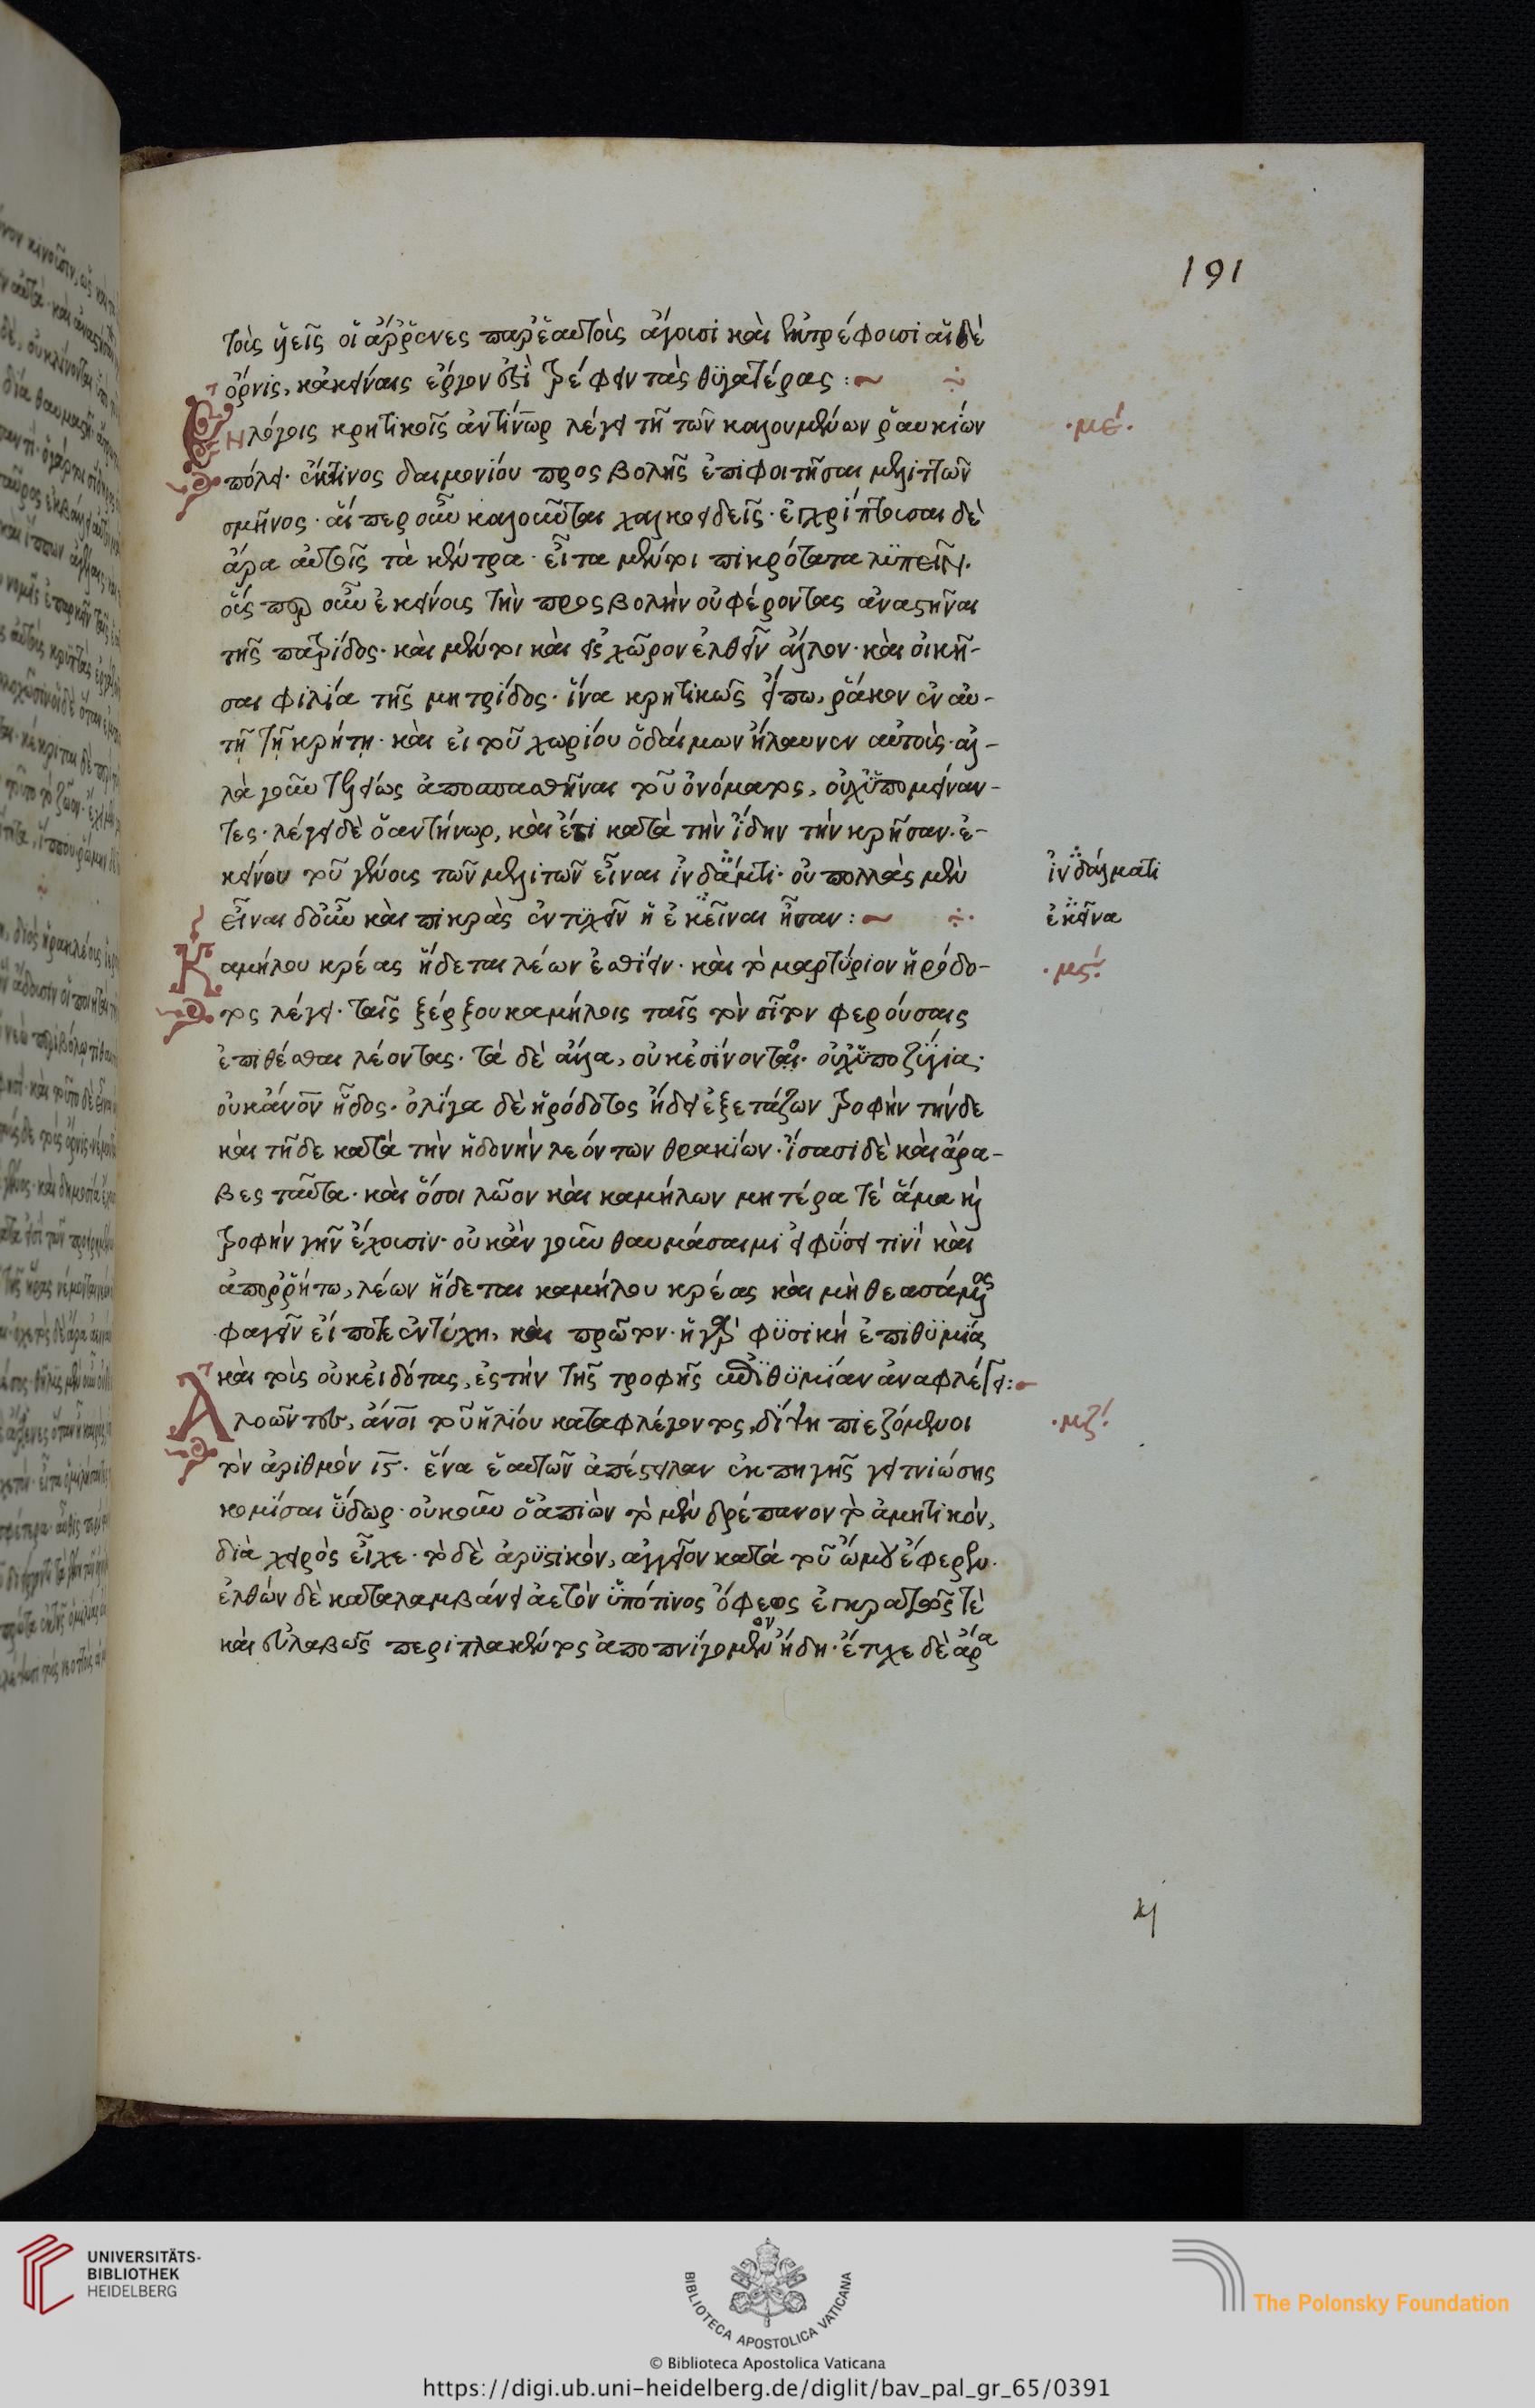 191
τοὺς υἱεῖς οἱ ἄρρενες παρ' ἑαυτοὺς ἄγουσι καὶ ἐκτρέφουσι αἱ δὲ
ὄρνις, κἀκείναις ἔργον ἐστὶ τρέφειν τὰς θυγατέρας :~ ÷
Ἐν λόγοις κρητικοῖς ἀντίνωρ λέγει τῇ τῶν καλουμένων ῥαυκίων ·με΄·
πόλει· ἔκ τινος δαιμονίου προσβολῆς ἐπιφοιτῆσαι μελιττῶν
σμῆνος· αἵπερ οὖν καλοῦνται χαλκοειδεῖς· ἐγχρίπτουσαι δὲ
ἄρα αὐτοῖς τὰ κέντρα· εἶτα μέντοι πικρότατα λυπεῖν.
οἷς περ οὖν ἐκείνοις τὴν προσβολὴν οὐ φέροντας ἀναστῆναι
τῆς πατρίδος· καὶ μέντοι καὶ εἰς χῶρον ἐλθεῖν ἄλλον· καὶ οἰκῆ-
σαι φιλία τῆς μητρίδος· ἵνα κρητικῶς εἴπω, ῥάκον ἐν αὐ-
τῇ τῇ κρήτῃ· καὶ εἰ τοῦ χωρίου ὁ δαίμων ἤλαυνεν αὐτούς· ἀλ-
λὰ γοῦν τελείως ἀποσπασθῆναι τοῦ ὀνόματος, οὐχ ὑπομείναν-
τες· λέγει δὲ ὁ ἀντήνωρ, καὶ ἔτι κατὰ τὴν ἴδην τὴν κρῆσαν· ἐ-
κείνου τοῦ γένους τῶν μελιτῶν εἶναι ἰνδάματι· οὐ πολλὰς μὲν ἰνδάλματι
εἶναι δ' οὖν καὶ πικρὰς ἐντυχεῖν ἢ ἐκεῖναι ἦσαν :~ ÷· ἐκεῖνα
Καμήλου κρέας ἥδεται λέων ἐσθίειν· καὶ τὸ μαρτύριον ἡρόδο- ·μϛ΄·
τος λέγει· ταῖς ξέρξου καμήλοις ταῖς τὸν σῖτον φερούσαις
ἐπιθέσθαι λέοντας· τὰ δὲ ἄλλα, οὐκ ἐσίνοντο· οὐχ ὑποζύγια·
οὐκ ἄνον ἦδος· ὀλίγα δὲ ἡρόδοτος ᾔδει ἐξετάζων τροφὴν τήνδε
καὶ τῇδε κατὰ τὴν ἡδονὴν λεόντων θρακίων· ἴσασι δὲ καὶ ἄρα-
βες ταῦτα· καὶ ὅσοι λῶον καὶ καμήλων μητέρα τέ ἅμα καὶ
τροφὴν γῆν ἔχουσιν· οὐκ ἂν γοῦν θαυμάσαιμι εἰ φύσει τινὶ καὶ
ἀπορρήτω, λέων ἥδεται καμήλου κρέας καὶ μὴ θεασάμενος
φαγεῖν εἴ ποτε ἐντύχη, καὶ πρῶτον· ἡ γὰρ φυσικὴ ἐπιθυμία
καὶ τοὺς οὐκ εἰδότας, ἐς τὴν τῆς τροφῆς ἐπιθυμίαν ἀναφλέγει :~
Ἀλοῶντες, ἄνοι τοῦ ἡλίου καταφλέγοντος, δίψη πιεζόμενοι ·μζ΄·
τὸν ἀριθμὸν ιϛ· ἕνα ἑαυτῶν ἀπέστειλαν ἐκ πηγῆς γειτνιώσης
κομίσαι ὕδωρ· οὐκοῦν ὁ ἀπιὼν τὸ μὲν δρέπανον τὸ ἀμητικόν,
διὰ χειρὸς εἶχε· τὸ δὲ ἀρυστικόν, ἀγγεῖον κατὰ τοῦ ὤμου ἔφερεν.
ἐλθὼν δὲ καταλαμβάνει ἀετὸν ὑπό τινος ὄφεος ἐγκρατῶς τὲ
καὶ εὐλαβῶς περιπλακέντος ἀποπνιγόμενον ἤδη· ἔτυχε δὲ ἄρα
UNIVERSITÄTS-
BIBLIOTHEK
HEIDELBERG
BIBLIOTECA APOSTOLICA VATICANA
The Polonsky Foundation
© Biblioteca Apostolica Vaticana
https://digi.ub.uni-heidelberg.de/diglit/bav_pal_gr_65/0391